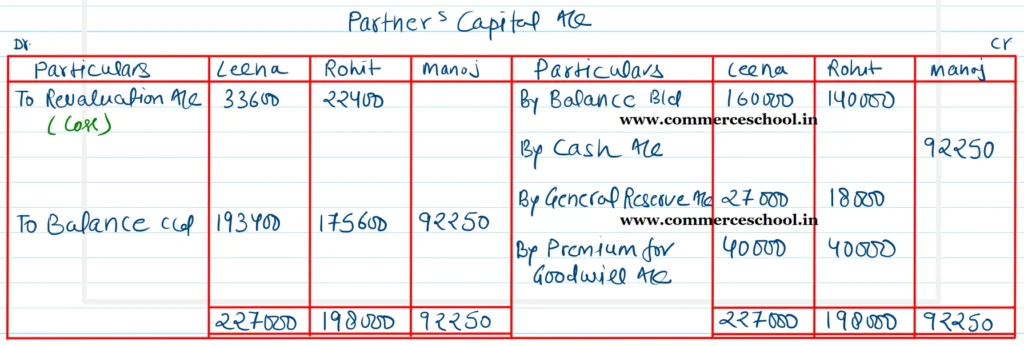 Partner's Capital A/c
Dr. Cr
Particulars Leena Rohit Manoj Particulars Leena Rohit Manoj
To Revaluation A/c 33600 22400 By Balance B/d 160000 140000
(Loss) www.commerceschool.in
By Cash A/c 92250
By General Reserve A/c 27000 18000
To Balance c/d 193400 175600 92250 www.commerceschool.in
By Premium for 40000 40000
Goodwill A/c
227000 198000 92250 227000 198000 92250